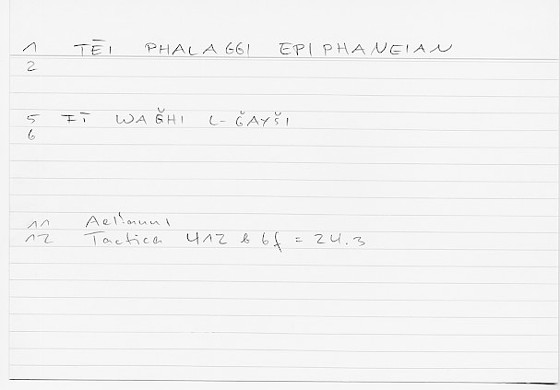 1 TĒI PHALAGGI EPIPHANEIAN
2
5 FĪ WAǦHI L-ǦAYŠI
6
11 Aelianus
12 Tactica 412 b 6f = 24.3